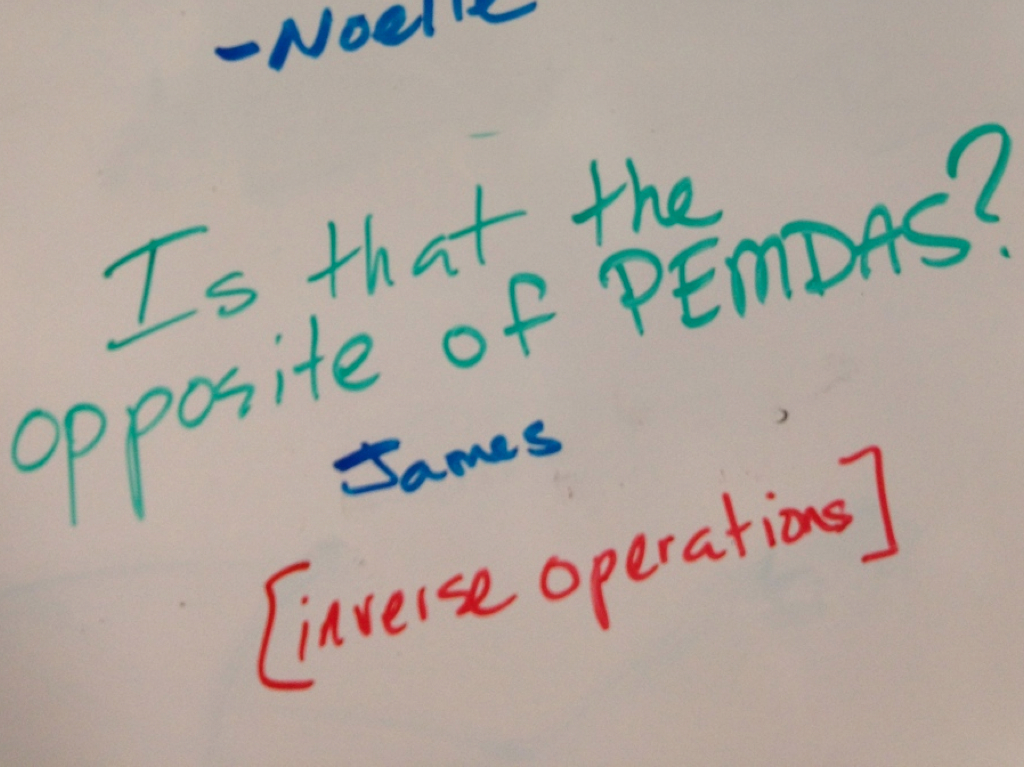 -Noelle
Is that the
opposite of PEMDAS?
James
[inverse operations]